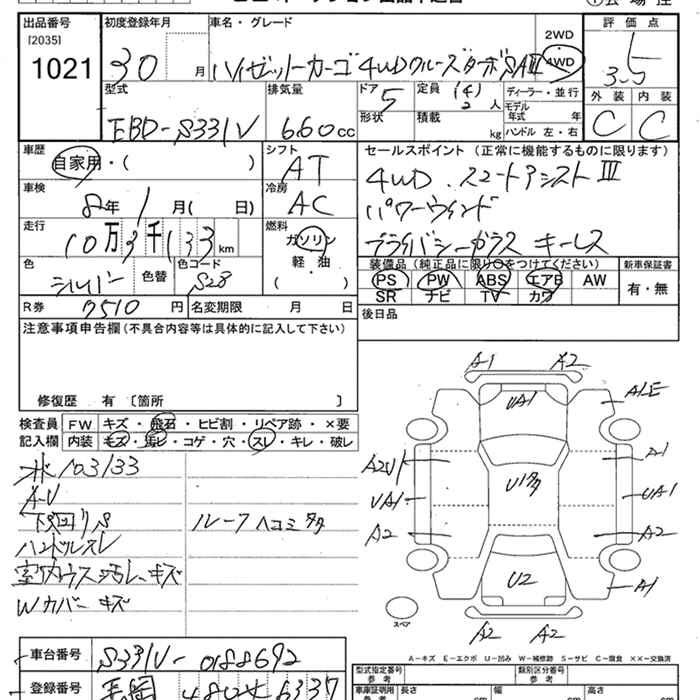 出品番号
[2035]
1021
初度登録年月
30 月
車名・グレード
ハイゼットカーゴ 4WDクルーズターボSAⅢ
2WD
4WD
評価点
3.5
外装 内装
C C
型式
EBD-S331V
排気量
660cc
ドア
5
形状
定員 (4)
2人
積載 kg
ディーラー・並行
モデル年式 年
ハンドル 左・右
車歴
自家用・( )
シフト
AT
セールスポイント (正常に機能するものに限ります)
4WD . スマートアシストⅢ
パワーウィンド
プライバシーガラス キーレス
車検
8年 1月( 日)
冷房
AC
走行
10万3千133km
燃料
ガソリン
軽・油
( )
色
シルバー
色替
色コード
S28
装備品 (純正品に限り○をつけてください)
PS PW ABS エアB AW
SR ナビ TV カワ
新車保証書
有・無
R券 7510 円
名変期限 月 日
後日品
注意事項申告欄(不具合内容等は具体的に記入して下さい)
修復歴 有〔箇所 〕
検査員記入欄
FW キズ・飛石・ヒビ割・リペア跡・×要
内装 キズ・汚レ・コゲ・穴・スレ・キレ・破レ
103133
A・U
下回りS
ルーフヘコミ多
ハンドルスレ
室内ウス汚レ キズ
Wカバー キズ
A1 A2
UA1
A1E
A2U1
A1
UA1
U1多
UA1
A2
A2
U2
A1
スペア
A2 A2
A-キズ E-エクボ U-凹み W-補修跡 S-サビ C-腐食 ××-交換済
車台番号
S331V-0188692
登録番号
6337
型式指定番号
参考
類別区分番号
車庫証明用
参考
長さ cm
幅 cm
高さ cm